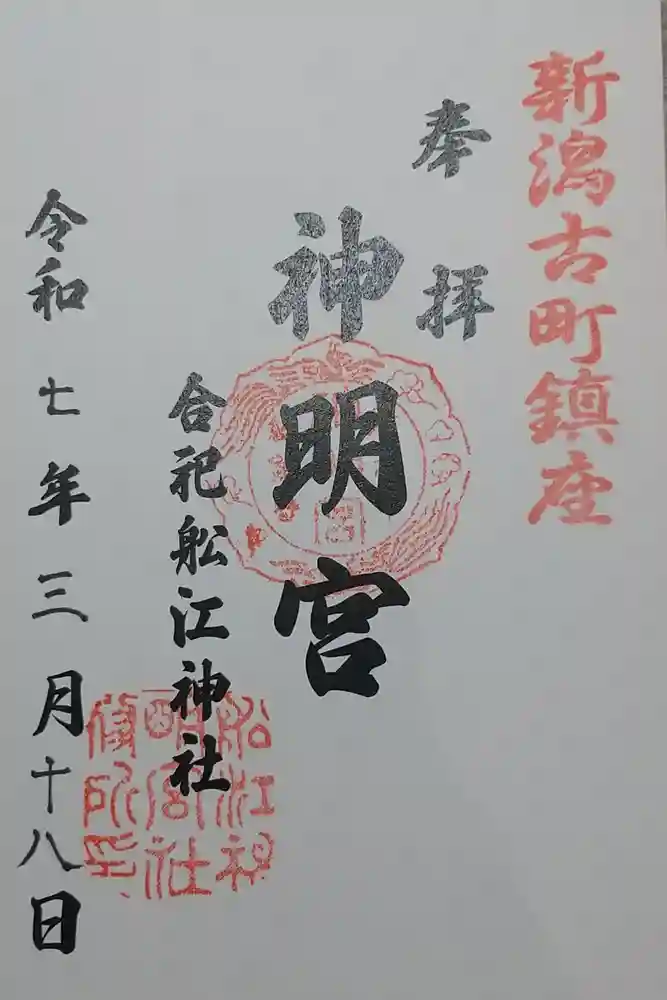 新潟古町鎮座
奉拝
神明宮
合祀船江神社
令和七年三月十八日
船江神
明宮社